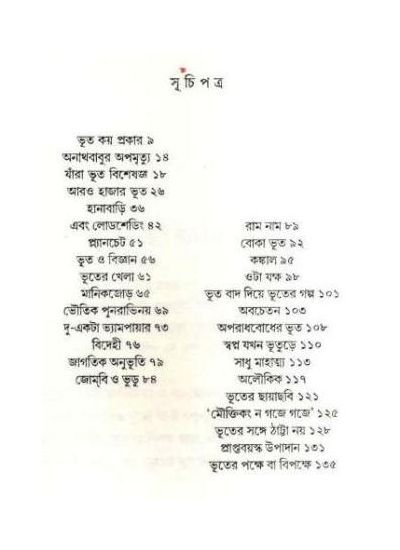 সূচিপত্র
ভূত কয় প্রকার ৯
অনাথবাবুর অপমৃত্যু ১৪
যাঁরা ভূত বিশেষজ্ঞ ১৮
আরও হাজার ভূত ২৬
হানাবাড়ি ৩৬
এবং লোডশেডিং ৪২
প্ল্যানচেট ৫১
ভূত ও বিজ্ঞান ৫৬
ভূতের খেলা ৬১
মানিকজোড় ৬৫
ভৌতিক পুনরাভিনয় ৬৯
দু-একটা ভ্যামপায়ার ৭৩
বিদেহী ৭৬
জাগতিক অনুভূতি ৭৯
জোম্‌বি ও ভুডু ৮৪
রাম নাম ৮৯
বোকা ভূত ৯২
কঙ্কাল ৯৫
ওটা যক্ষ ৯৮
ভূত বাদ দিয়ে ভূতের গল্প ১০১
অবচেতন ১০৩
অপরাধবোধের ভূত ১০৮
স্বপ্ন যখন ভূতুড়ে ১১০
সাধু মাহাত্ম্য ১১৩
অলৌকিক ১১৭
ভূতের ছায়াছবি ১২১
‘মৌক্তিকং ন গজে গজে’ ১২৫
ভূতের সঙ্গে ঠাট্টা নয় ১২৮
প্রাপ্তবয়স্ক উপাদান ১৩১
ভূতের পক্ষে বা বিপক্ষে ১৩৫